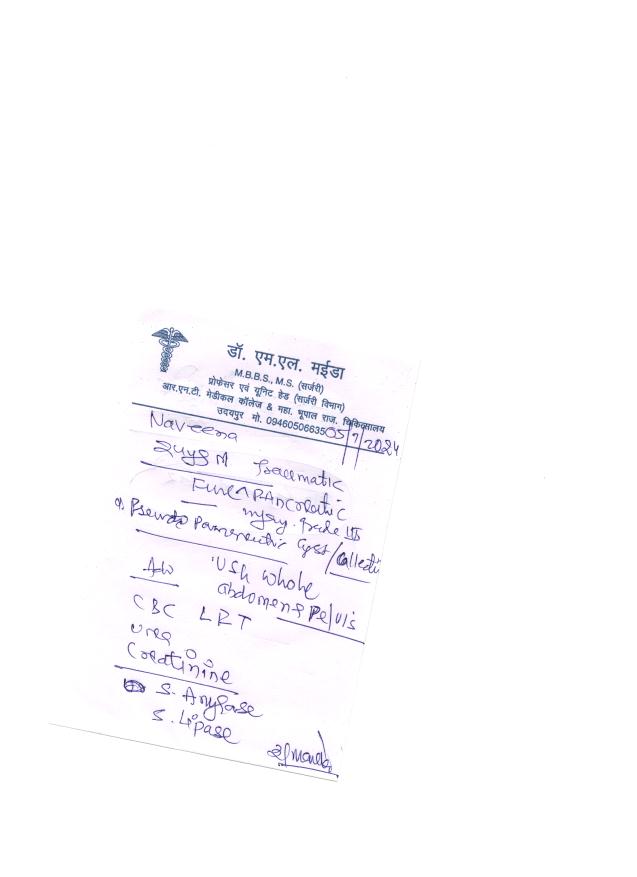 डॉ. एम.एल. मईडा
M.B.B.S., M.S. (सर्जरी)
प्रोफेसर एवं यूनिट हेड (सर्जरी विभाग)
आर.एन.टी. मेडीकल कॉलेज & महा. भूपाल राज. चिकित्सालय
उदयपुर मो. 09460506635 05/7/2024
Naveena
M
Grade III
Pseudo Cyst/Collecti
Adv USG Whole
abdomen & Pelvis
CBC LRT
urea
Creatinine
S. Amylase
S. Lipase